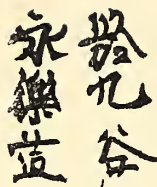 於九谷
永樂造